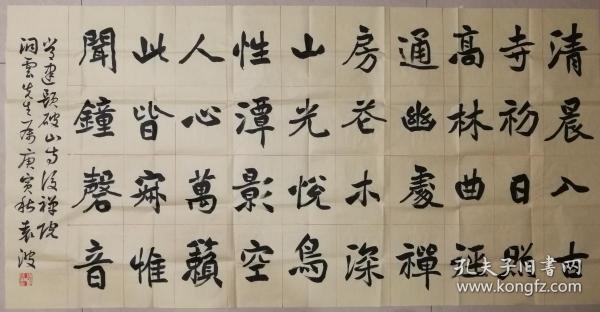 清晨入古
寺初日照
高林曲逕
通幽處禪
房花木深
山光悅鳥
性潭影空
人心萬籟
此皆寂惟
聞鐘磬音
常建題破山寺後禪院
洞雲先生屬庚寅秋袁波
孔夫子旧书网